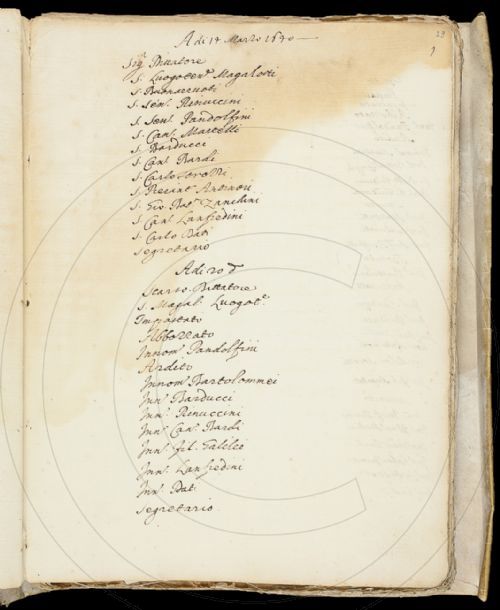 29
1
A di 14 Marzo 1640
Sig.r Dittatore
S. Luogoten.te Magalotti
S. Buonarruoti
S. Sen.e Rinuccini
S. Sen.e Pandolfini
S. Can.co Martelli
S. Barducci
S. Can.co Bardi
S. Carlo Strozzi
S. Antinori
S. Gio Bat.a Zanchini
S. Can.co Lanfredini
S. Carlo Dati
Segretario
A di 20 d.o
Dittatore
S. Magal.i Luogot.e
Impastato
Abbozzato
Innom.o Pandolfini
Ardito
Innom.o Bartolommei
Inn.o Barducci
Inn.o Rinuccini
Inn.o Can.co Bardi
Inn.o Fil. Galilei
Inn.o Lanfredini
Inn.o Dati
Segretario